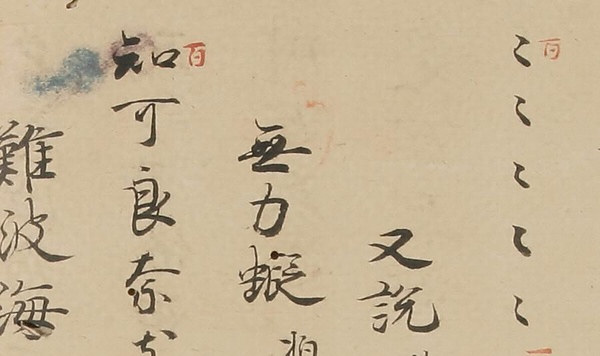 〻〻〻〻〻
百
又說
無力蝦
知可良奈
百
難波海